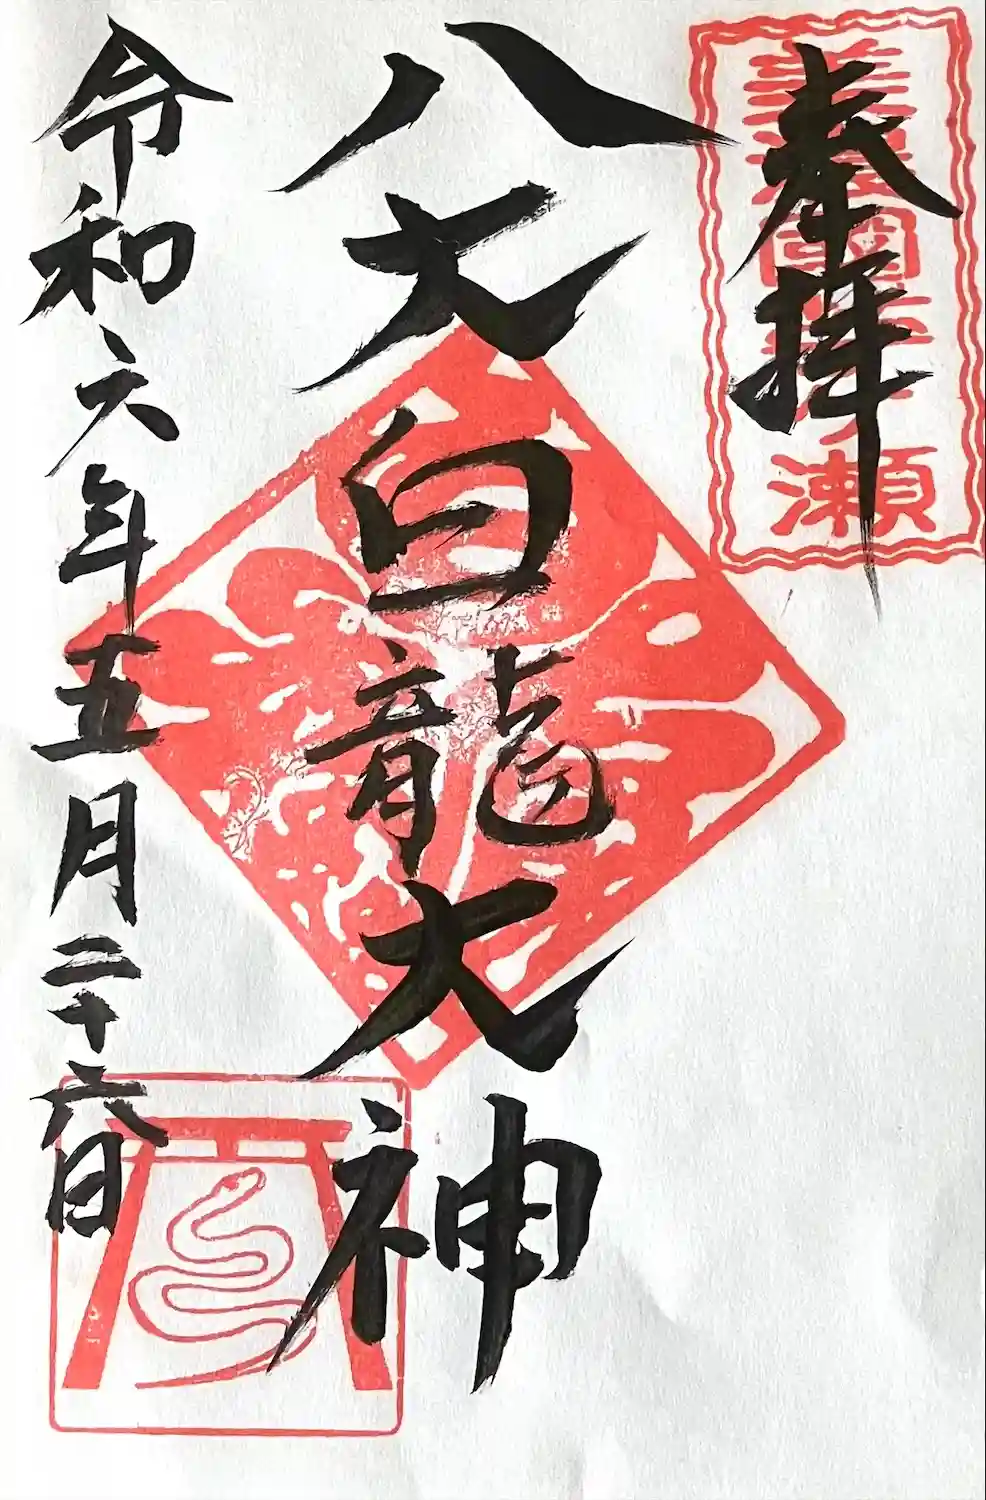 奉拝
美濃國 瀬
八大白龍大神
令和六年五月二十六日